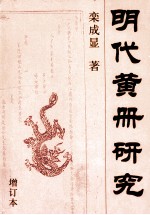 明代黄册研究
栾成显 著
增订本